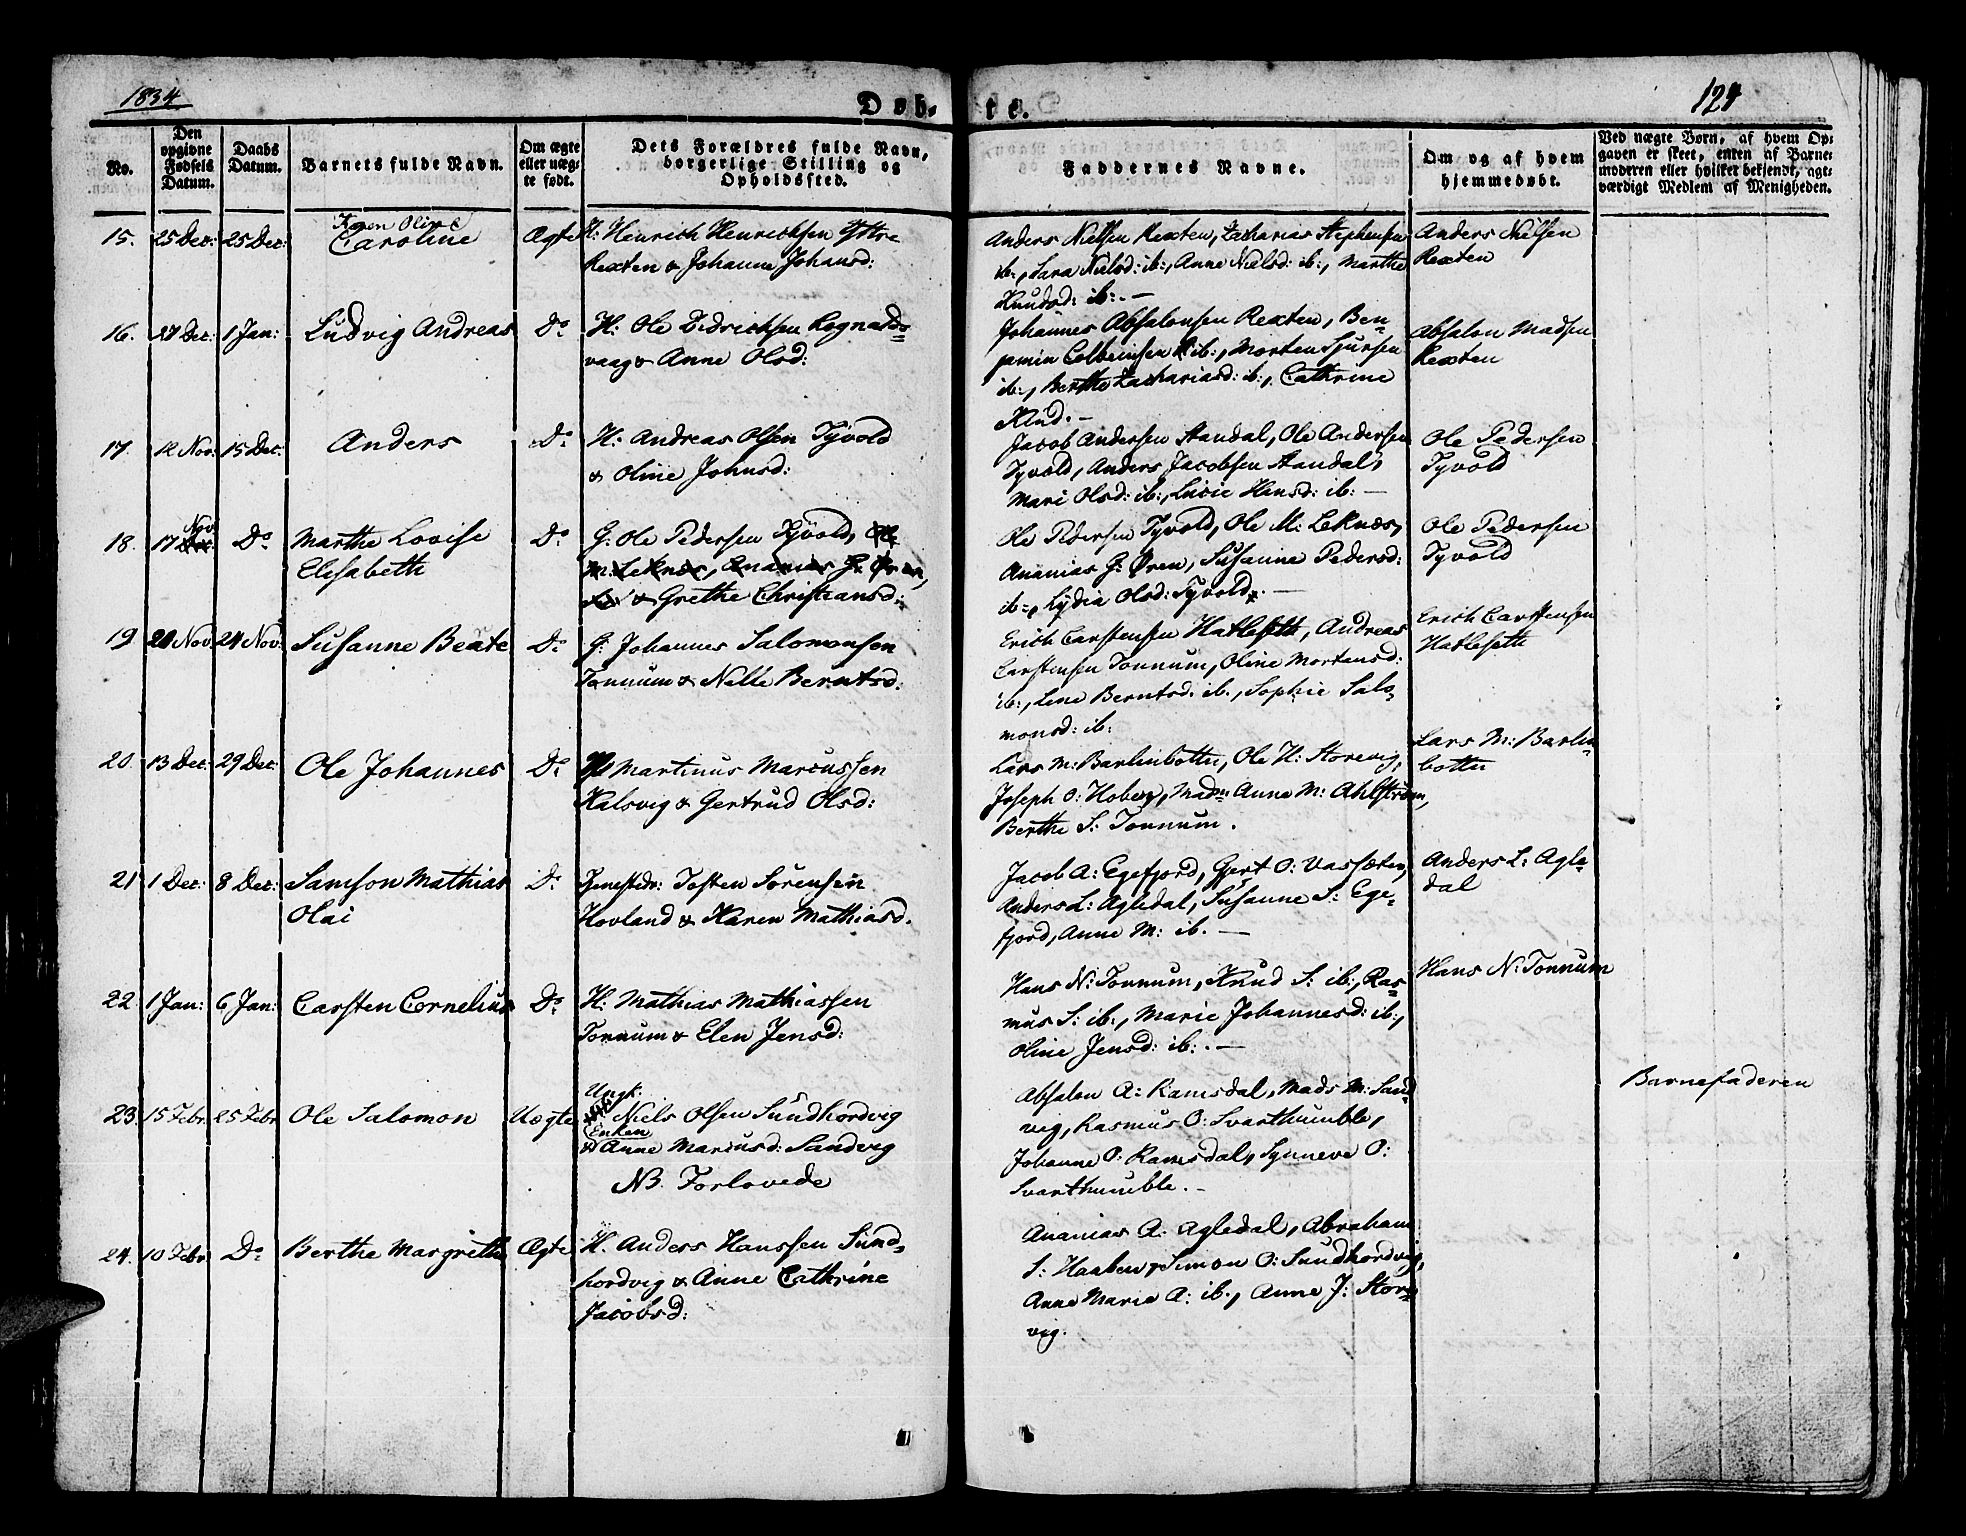 1834
Døb-
te.
124
No.
Den opgivne Fødsels Datum.
Daabs Datum.
Barnets fulde Navn.
Om ægte eller uæg-te født.
Dets Forældres fulde Navn, borgerlige Stilling og Opholdssted.
Faddernes Navne.
Om og af hvem hjemmedøbt.
Ved uægte Børn, af hvem Op-gaven er skeet, enten af Barne-moderen eller hvilket bekjendt, agt-værdigt Medlem af Menigheden.
15. 25 Dec: 25 Dec: Karen Oline
Caroline Ægte H: Henrich Henricksen Yttre
Rexten & Johanne Johansd:
Anders Nielsen Rexten, Zacharias Stephensen
ib:, Sara Nielsd: ib:, Anne Nielsd: ib:, Marthe
Knudsd: ib:. —
Anders Nielsen
Rexten
16. 27 Dec: 1 Jan: Ludvig Andreas Do. H: Ole Didricksen Rognalds=
vaag & Anne Olsd:
Johannes Absalonsen Rexten, Ben=
jamin Colbeinsen ib:, Morten Sjursen
ib:, Berthe Zachariasd: ib:, Cathrine
Knud. —
Absalon Madsen
Rexten
17. 12 Nov: 15 Dec: Anders Do. H: Andreas Olsen Tyvold
& Oline Johnsd:
Jacob Andersen Standal, Ole Andersen
Tyvold, Anders Jacobsen Standal,
Mari Olsd: ib:, Lucie Hansd: ib: —
Ole Pedersen
Tyvold
18. 17 Nov Do. Marthe Lovise
Elisabeth Do. G: Ole Pedersen Tyvold, Ole
M: Leknæs, Ananias G: Øren,
& Grethe Christiansd:
Ole Pedersen Tyvold, Ole M: Leknæs,
Ananias G: Øren, Susanne Pedersd:
ib:, Lydia Olsd: Tyvold. —
Ole Pedersen
Tyvold
19 20 Nov 24 Nov: Susanne Beate Do. G: Johannes Salomonsen
Tonnum & Nille Berntsd:
Erich Carstensen Hatleseth, Andreas
Carstensen Tonnum, Oline Mortensd:
ib:, Lene Berntsd. ib., Sophie Salo=
monsd: ib:
Erich Carstensen
Hatleseth
20. 13 Dec: 29 Dec: Ole Johannes Do. Martinus Marcussen
Kalsvig & Gertrud Olsd:
Lars M: Barlinbotten, Ole H: Storevig,
Joseph O: Hoberg, Madm: Anne M: Ahlstrøm,
Berthe S: Tonnum.
Lars M: Barlin=
botten
21 1 Dec: 8 Dec: Samson Mathias
Olai Do. Tjenestedr: Tosten Sørensen
Hovland & Karen Mathiasd.
Jacob A: Egefjord, Gjert O: Vassæten,
Anders L: Agledal, Susanne S: Ege=
fjord, Anne M: ib. —
Anders L: Agle=
dal
22. 1 Jan: 6 Jan: Carsten Cornelius Do. H: Mathias Mathiassen
Tonnum & Elen Jensd:
Hans N: Tonnum, Knud S: ib:, Ras=
mus S: ib:, Marie Johannesd: ib:,
Oline Jensd: ib:. —
Hans N: Tonnum
23. 15 Febr. 25 Febr Ole Salomon Uægte Ungk:
Niels Olsen Sundhordvig
Enken
& Anne Marcusd: Sandvig
NB. Forlovede
Absalon A: Ramsdal, Mads M: Sand
vig, Rasmus O: Svarthumble,
Johanne O: Ramsdal, Synneve O:
Svarthumble. —
Barnefaderen
24. 10 Febr Do. Berthe Margrethe Ægte H. Anders Hanssen Sund=
hordvig & Anne Cathrine
Jacobsd:
Ananias A: Agledal, Abraham
S: Haaben, Simon O: Sundhordvig,
Anne Marie A: ib., Anne J: Store=
vig.